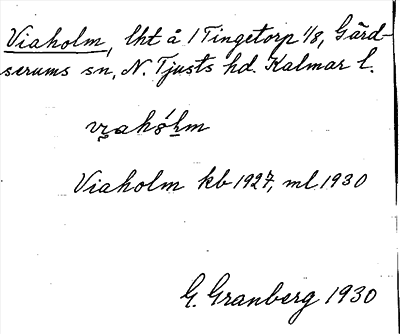 Viaholm, lht å 1 Tingetorp 1/8, Gärd-
serums sn, N. Tjusts hd. Kalmar l.
Viaholm kb 1927, ml 1930
G. Granberg 1930